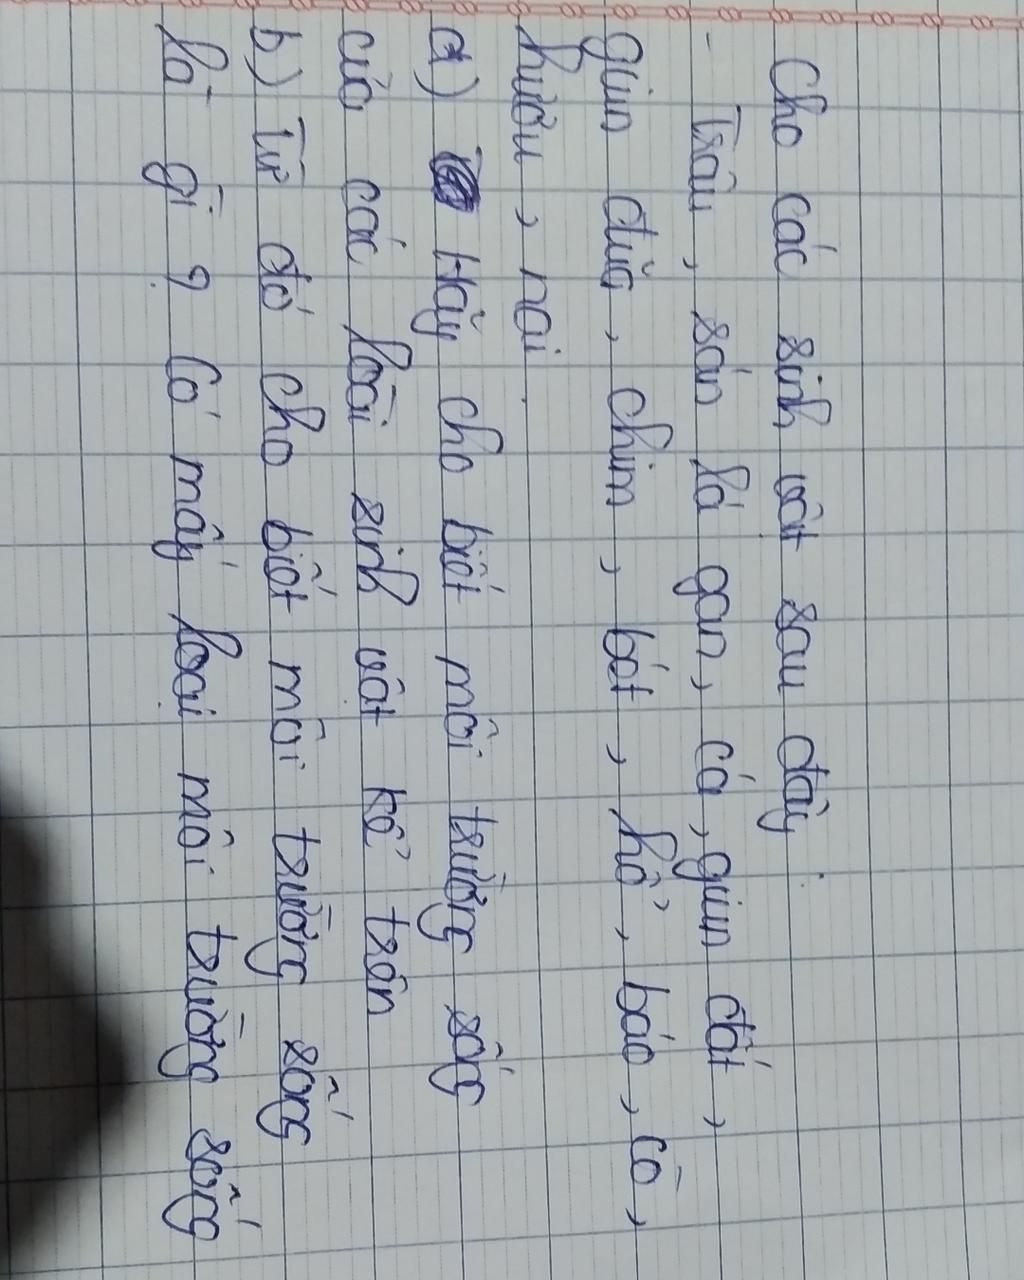 Cho các sinh vật sau đây.
- Trâu, sán lá gan, cá, giun đất,
giun đũa, chim, bét, hổ, báo, cò,
hươu, nai.
a) Hãy cho biết môi trường sống
của các loài sinh vật kể trên
b) Từ đó cho biết môi trường sống
là gì? Có mấy loại môi trường sống